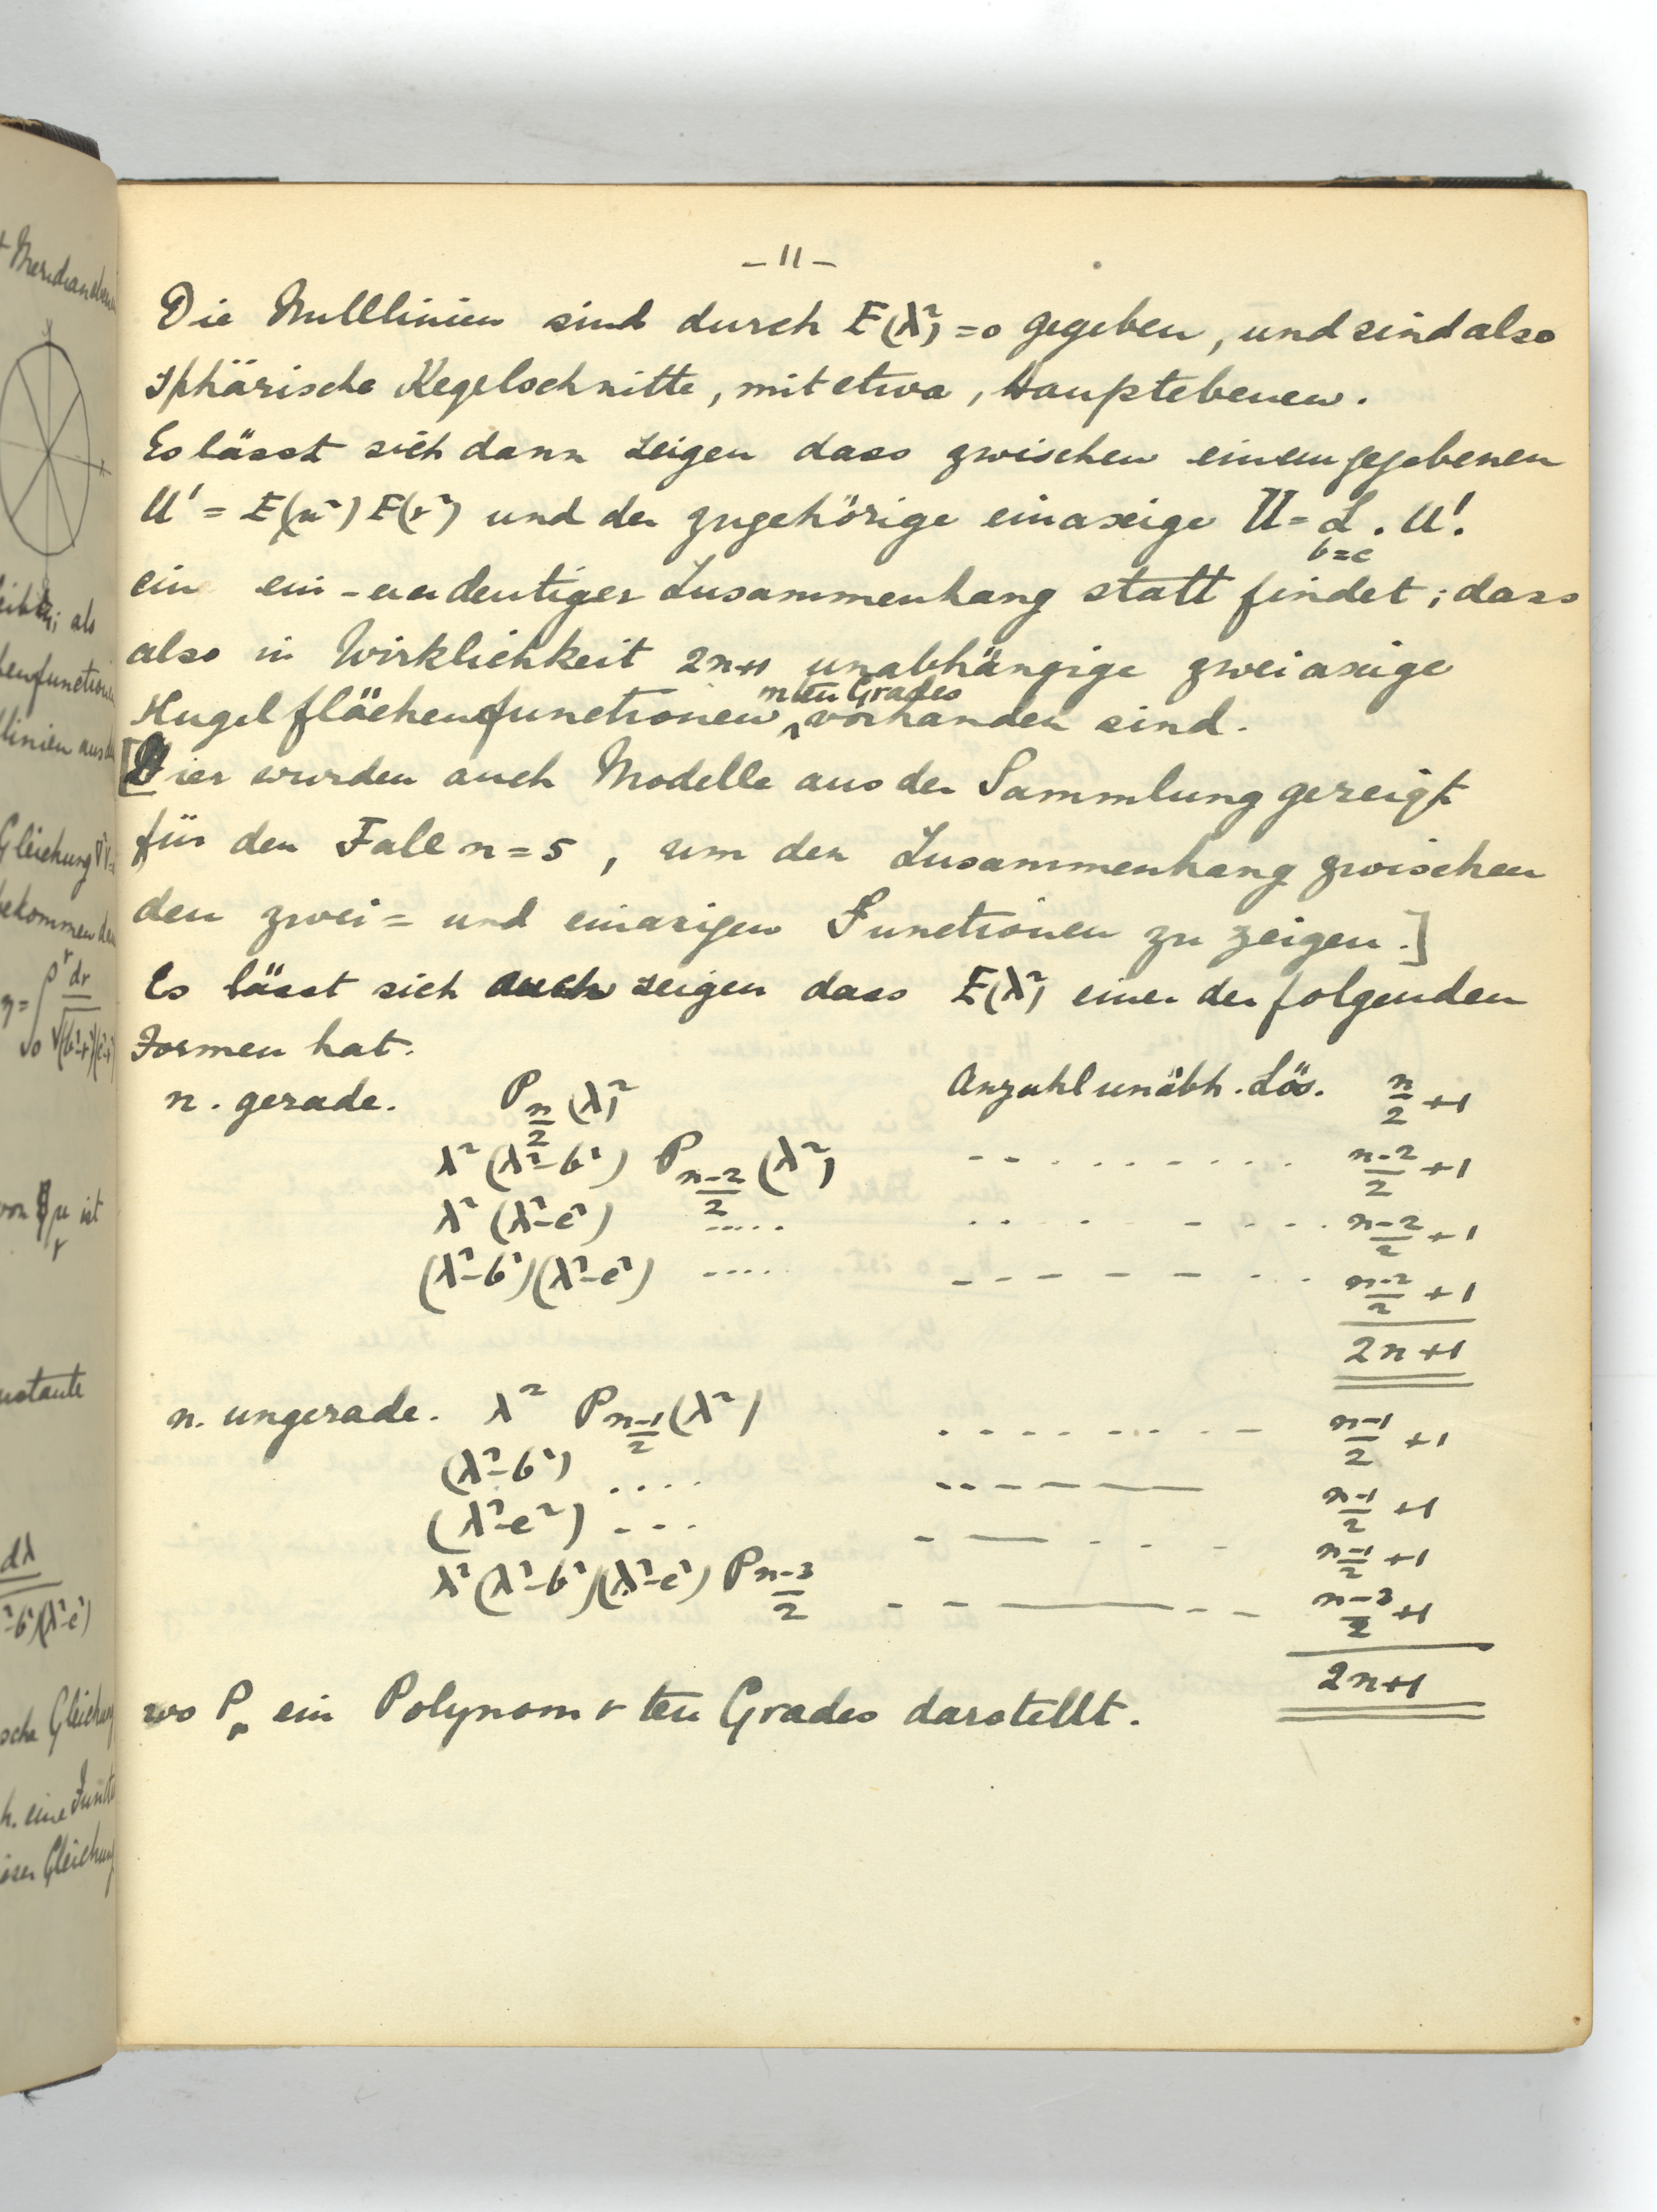 -11-
Die Nulllinien sind durch E(λ²)=0 gegeben, und sind also
sphärische Kegelschnitte, mit etwa, Hauptebenen.
Es lässt sich dann zeigen dass zwischen einem gegebenen
U' = E(μ²) E(ν²) und der zugehörige einaxige U = L . U'.
b=c
ein ein-eindeutiger Zusammenhang statt findet; dass
also in Wirklichkeit 2n+1 unabhängige zweiaxige
nten Grades
Kugelflächenfunctionen vorhanden sind.
[Hier wurden auch Modelle aus der Sammlung gezeigt
für den Fall n=5, um den Zusammenhang zwischen
den zwei= und einaxigen Functionen zu zeigen.]
Es lässt sich auch zeigen dass E(λ²) einer der folgenden
Formen hat.
n. gerade. P_{n/2}(λ²) Anzahl unabh. Lös. n/2 +1
λ²(λ²-b²) P_{(n-2)/2}(λ²) .......... (n-2)/2 +1
λ²(λ²-c²) ..... .......... (n-2)/2 +1
(λ²-b²)(λ²-c²) ..... .......... (n-2)/2 +1
2n+1
n. ungerade. λ² P_{(n-1)/2}(λ²) .......... (n-1)/2 +1
(λ²-b²) .... ------ (n-1)/2 +1
(λ²-c²) .... ------ (n-1)/2 +1
λ²(λ²-b²)(λ²-c²) P_{(n-3)/2} ------ (n-3)/2 +1
2n+1
wo P_r ein Polynom r ten Grades darstellt.